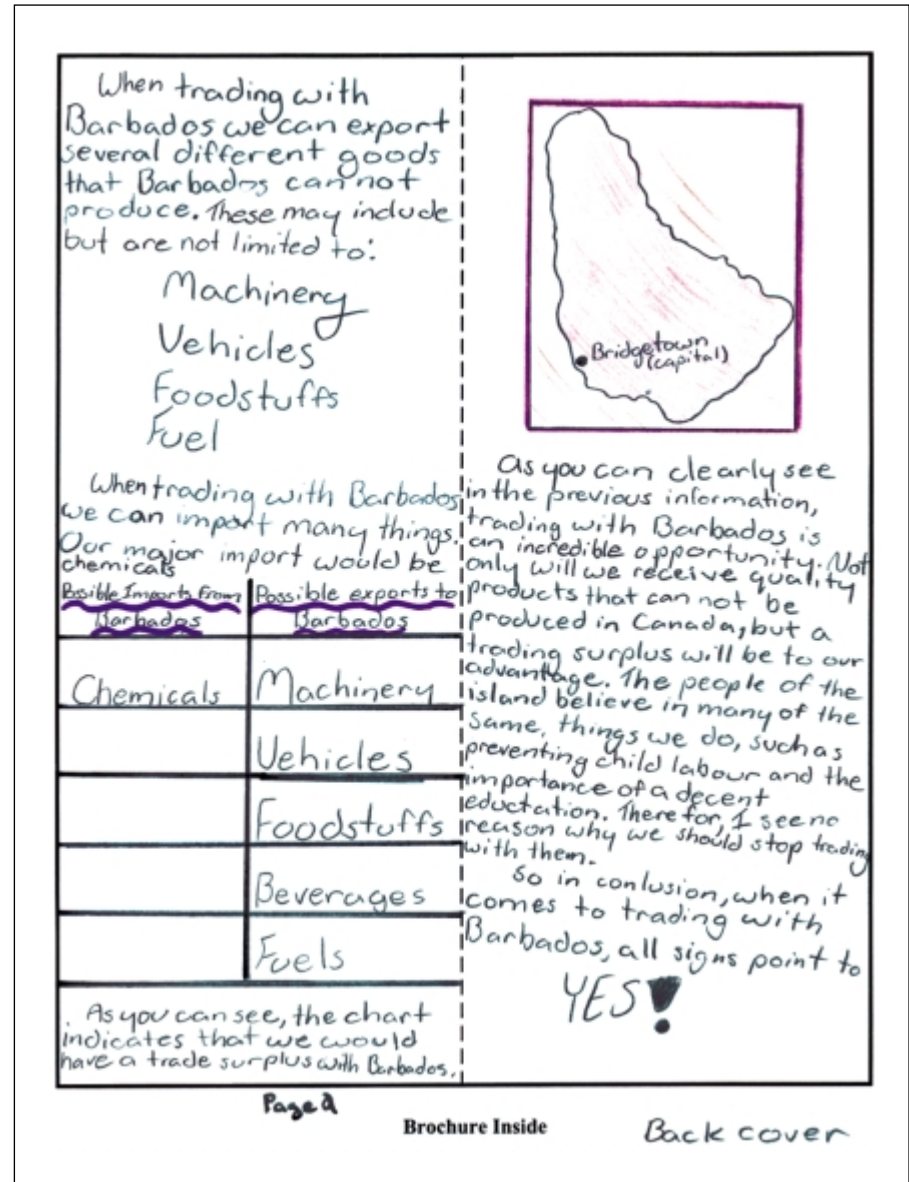 When trading with
Barbados we can export
several different goods
that Barbados can not
produce. These may include
but are not limited to:
Machinery
Vehicles
Foodstuffs
Fuel
When trading with Barbados
we can import many things.
Our major import would be
chemicals
Possible Imports from
Barbados
Possible exports to
Barbados
Chemicals
Machinery
Vehicles
Foodstuffs
Beverages
Fuels
As you can see, the chart
indicates that we would
have a trade surplus with Barbados.
Page 2
Bridgetown
(capital)
As you can clearly see
in the previous information,
trading with Barbados is
an incredible opportunity. Not
only will we receive quality
products that can not be
produced in Canada, but a
trading surplus will be to our
advantage. The people of the
island believe in many of the
same, things we do, such as
preventing child labour and the
importance of a decent
eductation. There for, I see no
reason why we should stop trading
with them.
So in conlusion, when it
comes to trading with
Barbados, all signs point to
YES!
Brochure Inside
Back cover